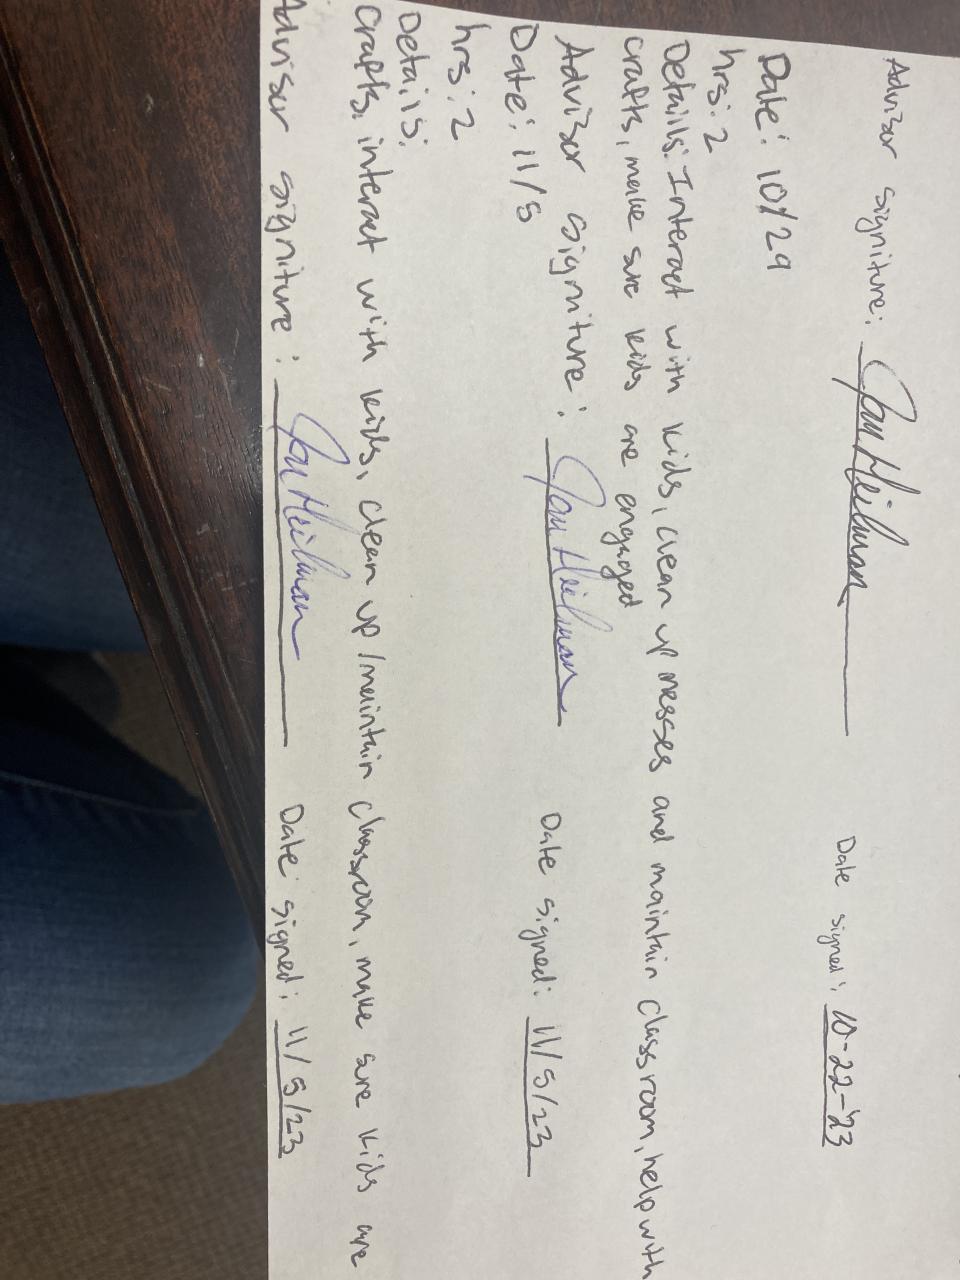 Advisor signiture: Jan Heilman Date signed: 10-22-'23
Date: 10/29
hrs: 2
Details: Interact with kids, clean up messes and maintain classroom, help with
crafts, make sure kids are engaged
Advisor signiture: Jan Heilman Date signed: 11/5/23
Date: 11/5
hrs: 2
Details:
crafts, interact with kids, clean up/maintain classroom, make sure kids are
Advisor signiture: Jan Heilman Date signed: 11/5/23